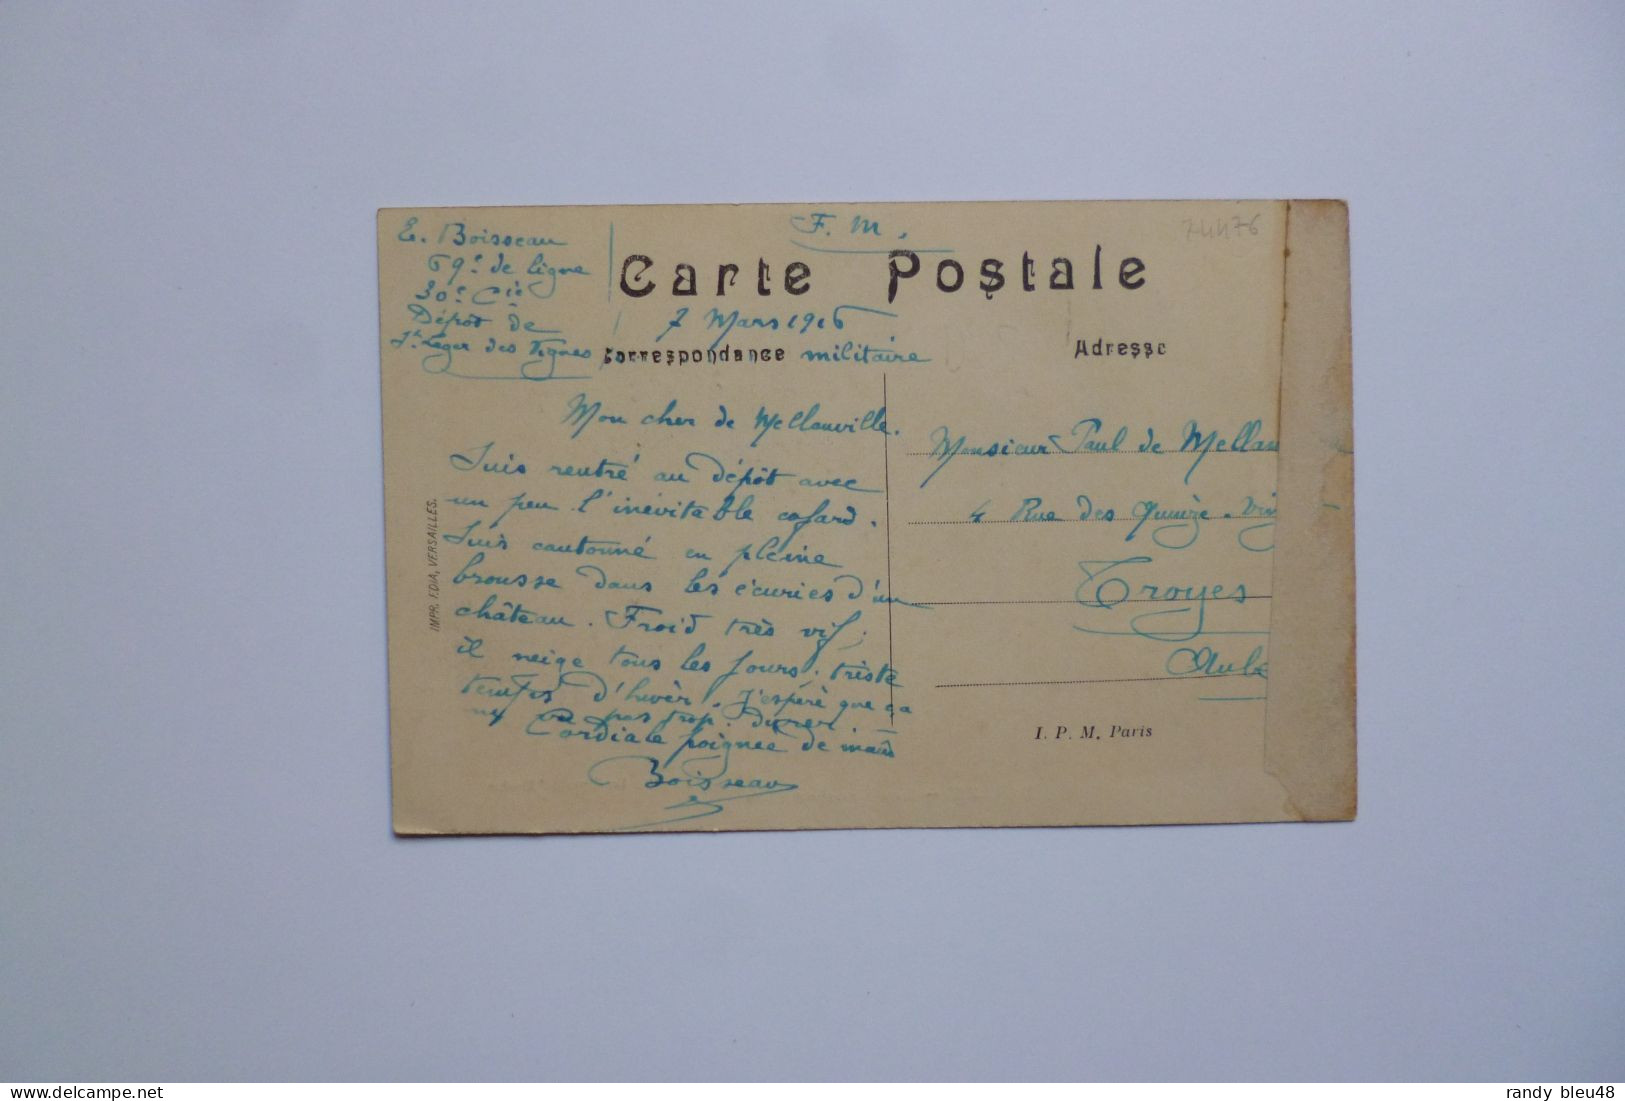 E. Boisseau
69e de ligne
30e Cie
Dépôt de
St Leger des Vignes
F. M.
74476
Carte Postale
7 Mars 1916
Correspondance militaire
Adresse
Mon cher de Mellanville.
Suis rentré au Dépôt avec
un peu l'inévitable cafard.
Suis cantonné en pleine
brousse dans les écuries d'un
château. Froid très vif,
il neige tous les jours, triste
temps d'hiver. J'espère que ça
ne va pas trop durer
Cordiale poignée de main
Boisseau
Monsieur Paul de Mellan
4 Rue des Quinze-Vin
Troyes
Aube
I. P. M. Paris
IMPR. EDIA, VERSAILLES.
randy bleu48